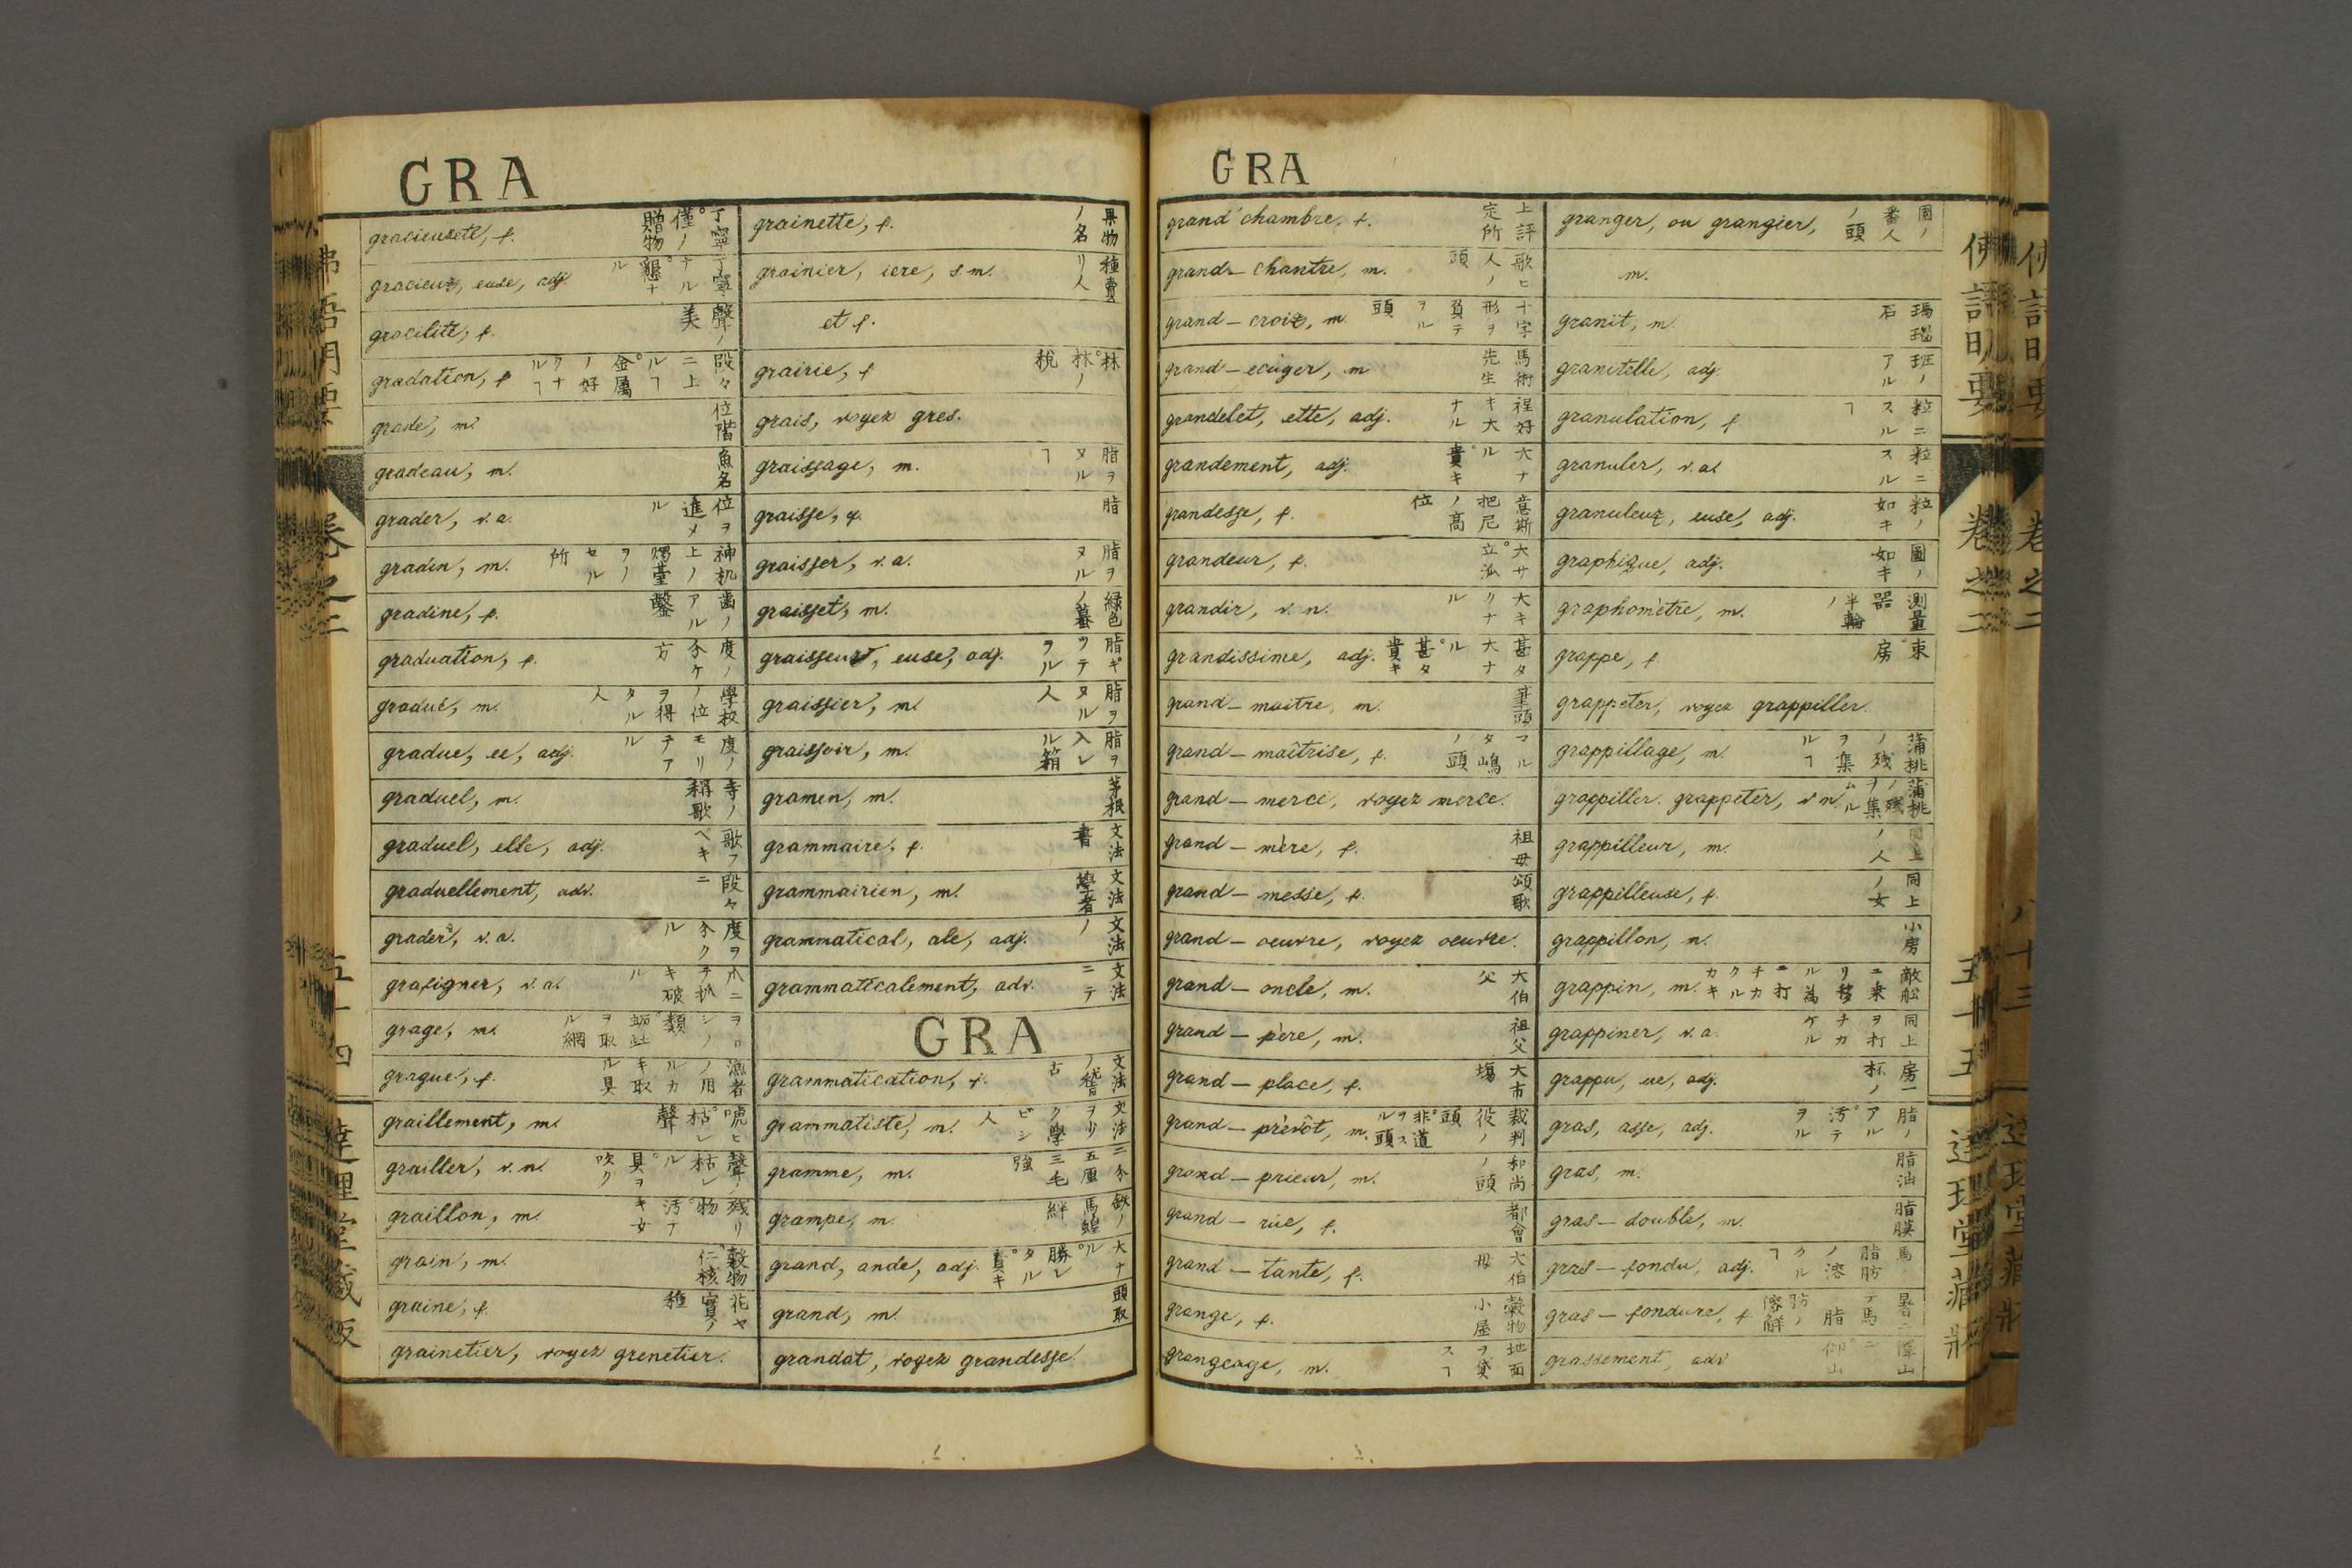 GRA
gracieuseté, f. 丁寧。僅ノ贈物
gracieux, euse, adj. 丁寧ナル。懇ナル
gracilité, f. 聲ノ美
gradation, f. 段々ニ上ルヿ。金屬ノ好クナルヿ
grade, m. 位階
gradeau, m. 魚名
grader, v. a. 位ヲ進メル
gradin, m. 神机上ノ燭臺ヲノセル所
gradine, f. 歯ノアル鑿
graduation, f. 度ノ分ケ方
gradué, m. 學校ノ位ヲ得タル人
gradué, ée, adj. 度ノモリテアル
graduel, m. 寺ノ稱歌
graduel, elle, adj. 歌フベキ
graduellement, adv. 段々ニ
grader, v. a. 度ヲ分クル
grafigner, v. a. 爪ニテ抓キ破ル
grage, m.
gragué, f.
graillement, m. 號ヒ枯レ聲
grailler, v. n. 聲ノ枯レル。貝ヲ吹ク
graillon, m. 残リ物。汚ナキ女
grain, m. 穀物。仁核
graine, f. 花ヤ實ノ種
grainetier, voyez grenetier.
grainette, f. 果物ノ名
grainier, iere, s. m. 種賣リ人
et f.
grairie, f. 林。林ノ税
grais, voyez gres.
graissage, m. 脂ヲヌルヿ
graisse, f. 脂
graisser, v. a. 脂ヲヌル
graisset, m. 緑色ノ蟇
graisseux, euse, adj. 脂ギツテヲル
graissier, m. 脂ヲヌル人
graissoir, m. 脂ヲ入レル箱
gramen, m. 茅根
grammaire, f. 文法書
grammairien, m. 文法學者
grammatical, ale, adj. 文法ノ
grammaticalement, adv. 文法ニテ
GRA
grammatication, f. 文法ノ稽古
grammatiste, m. 文法ヲ少ク學ビシ人
gramme, m. 二分五厘三毛強
grampe, m.
grand, ande, adj. 大ナル。勝レタル。貴キ
grand, m. 頭取
grandat, voyez grandesse
GRA
grand'chambre, f. 上評定所
grand-chantre, m. 歌ヒ人ノ頭
grand-croix, m. 十字形ヲ負テヲル頭
grand-ecuyer, m 馬術先生
grandelet, ette, adj. 程好キ大ナル
grandement, adj. 大ナル。貴キ
grandesse, f. 意斯把尼ノ高位
grandeur, f. 大サ。立派
grandir, v. n. 大キクナル
grandissime, adj. 甚タ大ナル。甚タ貴キ
grand-maitre, m. 筆頭
grand-maîtrise, f. マルタ嶋ノ頭
grand-merci, voyez merce.
grand-mère, f. 祖母
grand-messe, f. 頌歌
grand-oeuvre, voyez oeuvre.
grand-oncle, m. 大伯父
grand-père, m. 祖父
grand-place, f. 大市場
grand-prévôt, m. 裁判役ノ頭。非道ヲスル頭
grand-prieur, m. 和尚ノ頭
grand-rue, f. 都會
grand-tante, f. 大伯母
grange, f. 穀物小屋
grangeage, m. 地面ヲ貸スヿ
granger, ou grangier, 圃ノ番人ノ頭
m.
granit, m. 瑪瑙石
granitelle, adj. 班ノアル
granulation, f. 粒ニスルヿ
granuler, v. a. 粒ニスル
granuleux, euse, adj. 粒ノ如キ
graphique, adj. 圖ノ如キ
graphomètre, m. 測量器ノ半輪
grappe, f. 束。房
grappeter, voyez grappiller.
grappillage, m. 蒲桃ノ残ヲ集ルヿ
grappiller. grappeter, v. n. 蒲桃ノ残ヲ集ムル
grappilleur, m. 同上ノ人
grappilleuse, f. 同上ノ女
grappillon, m. 小房
grappin, m. 敵舩ニ来リ移ル為ニ打チカクルカキ
grappiner, v. a. 同上ヲ打チカケル
grappu, ue, adj. 房一杯ノ
gras, asse, adj. 脂ノアル。汚テヲル
gras, m. 脂油
gras-double, m. 脂膜
gras-fondu, adj. 馬ノ脂肪ノ溶クルヿ
gras-fondure, f.
grassement, adv
佛語明要
卷之二
五十四
達理堂藏版
五十五